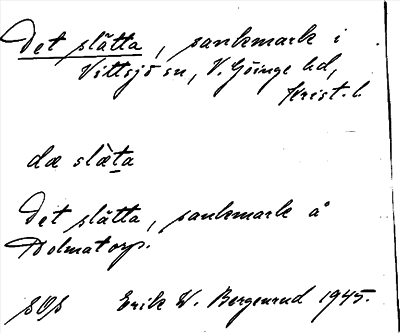 Det slätta, sankmark i
Vittsjö sn, V. Göinge hd,
Krist. l.
dæ slæ̀ta
Det slätta, sankmark å
Dolmatorp.
SOS Erik W. Bergenrud 1945.